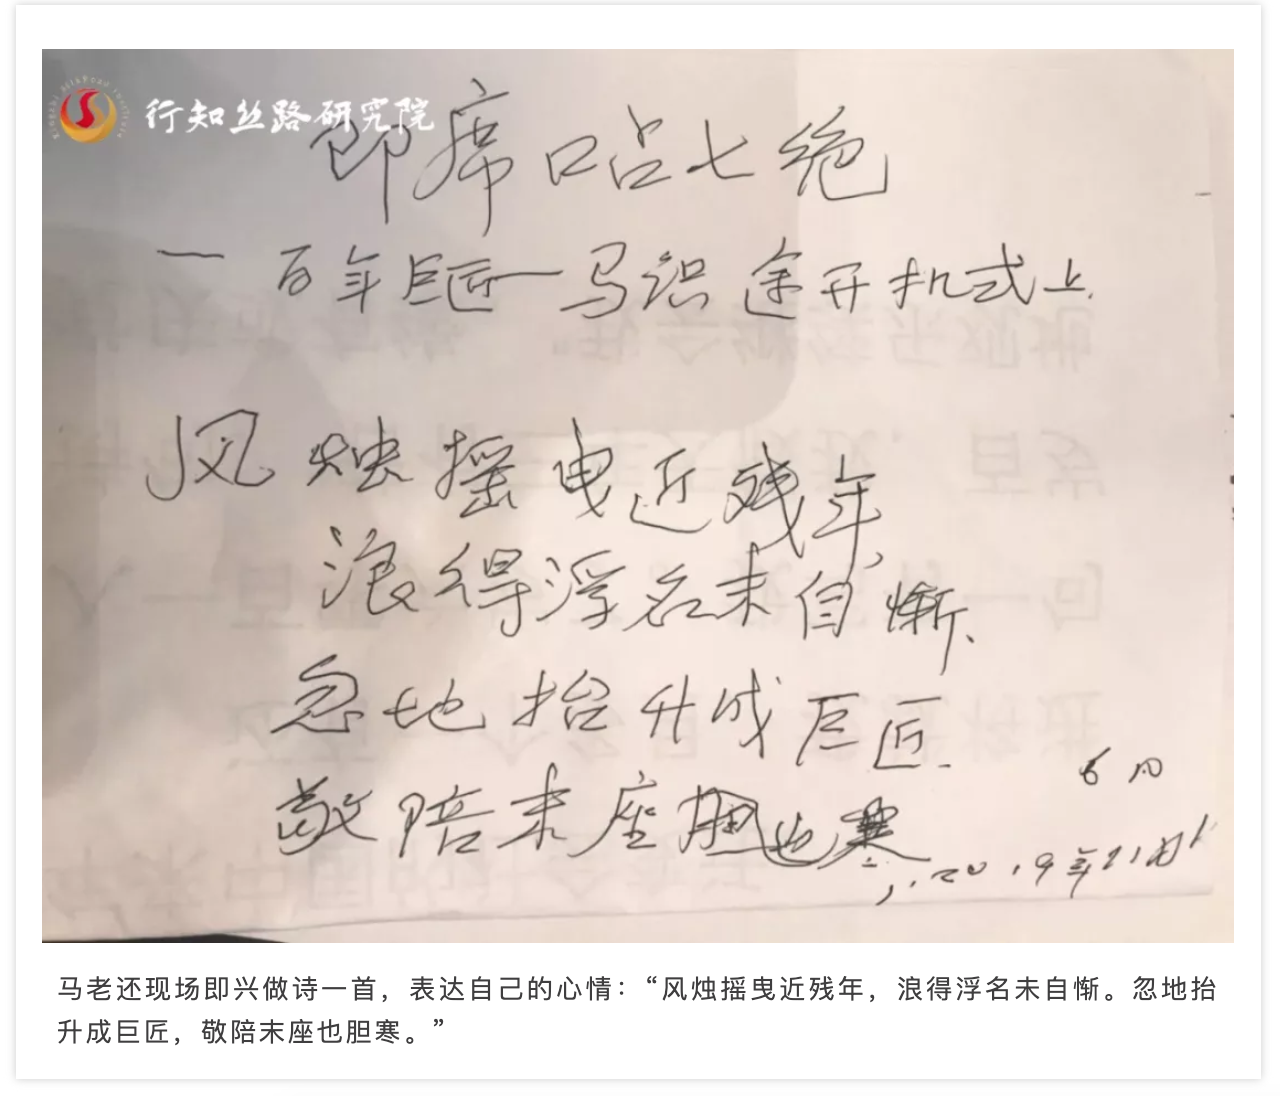 行知丝路研究院
即席口占七绝
一百年巨匠一马识途开机式上
风烛摇曳近残年,
浪得浮名未自惭、
忽地抬升成巨匠
敬陪末座胆也寒
马老还现场即兴做诗一首，表达自己的心情：“风烛摇曳近残年，浪得浮名未自惭。忽地抬
升成巨匠，敬陪末座也胆寒。”